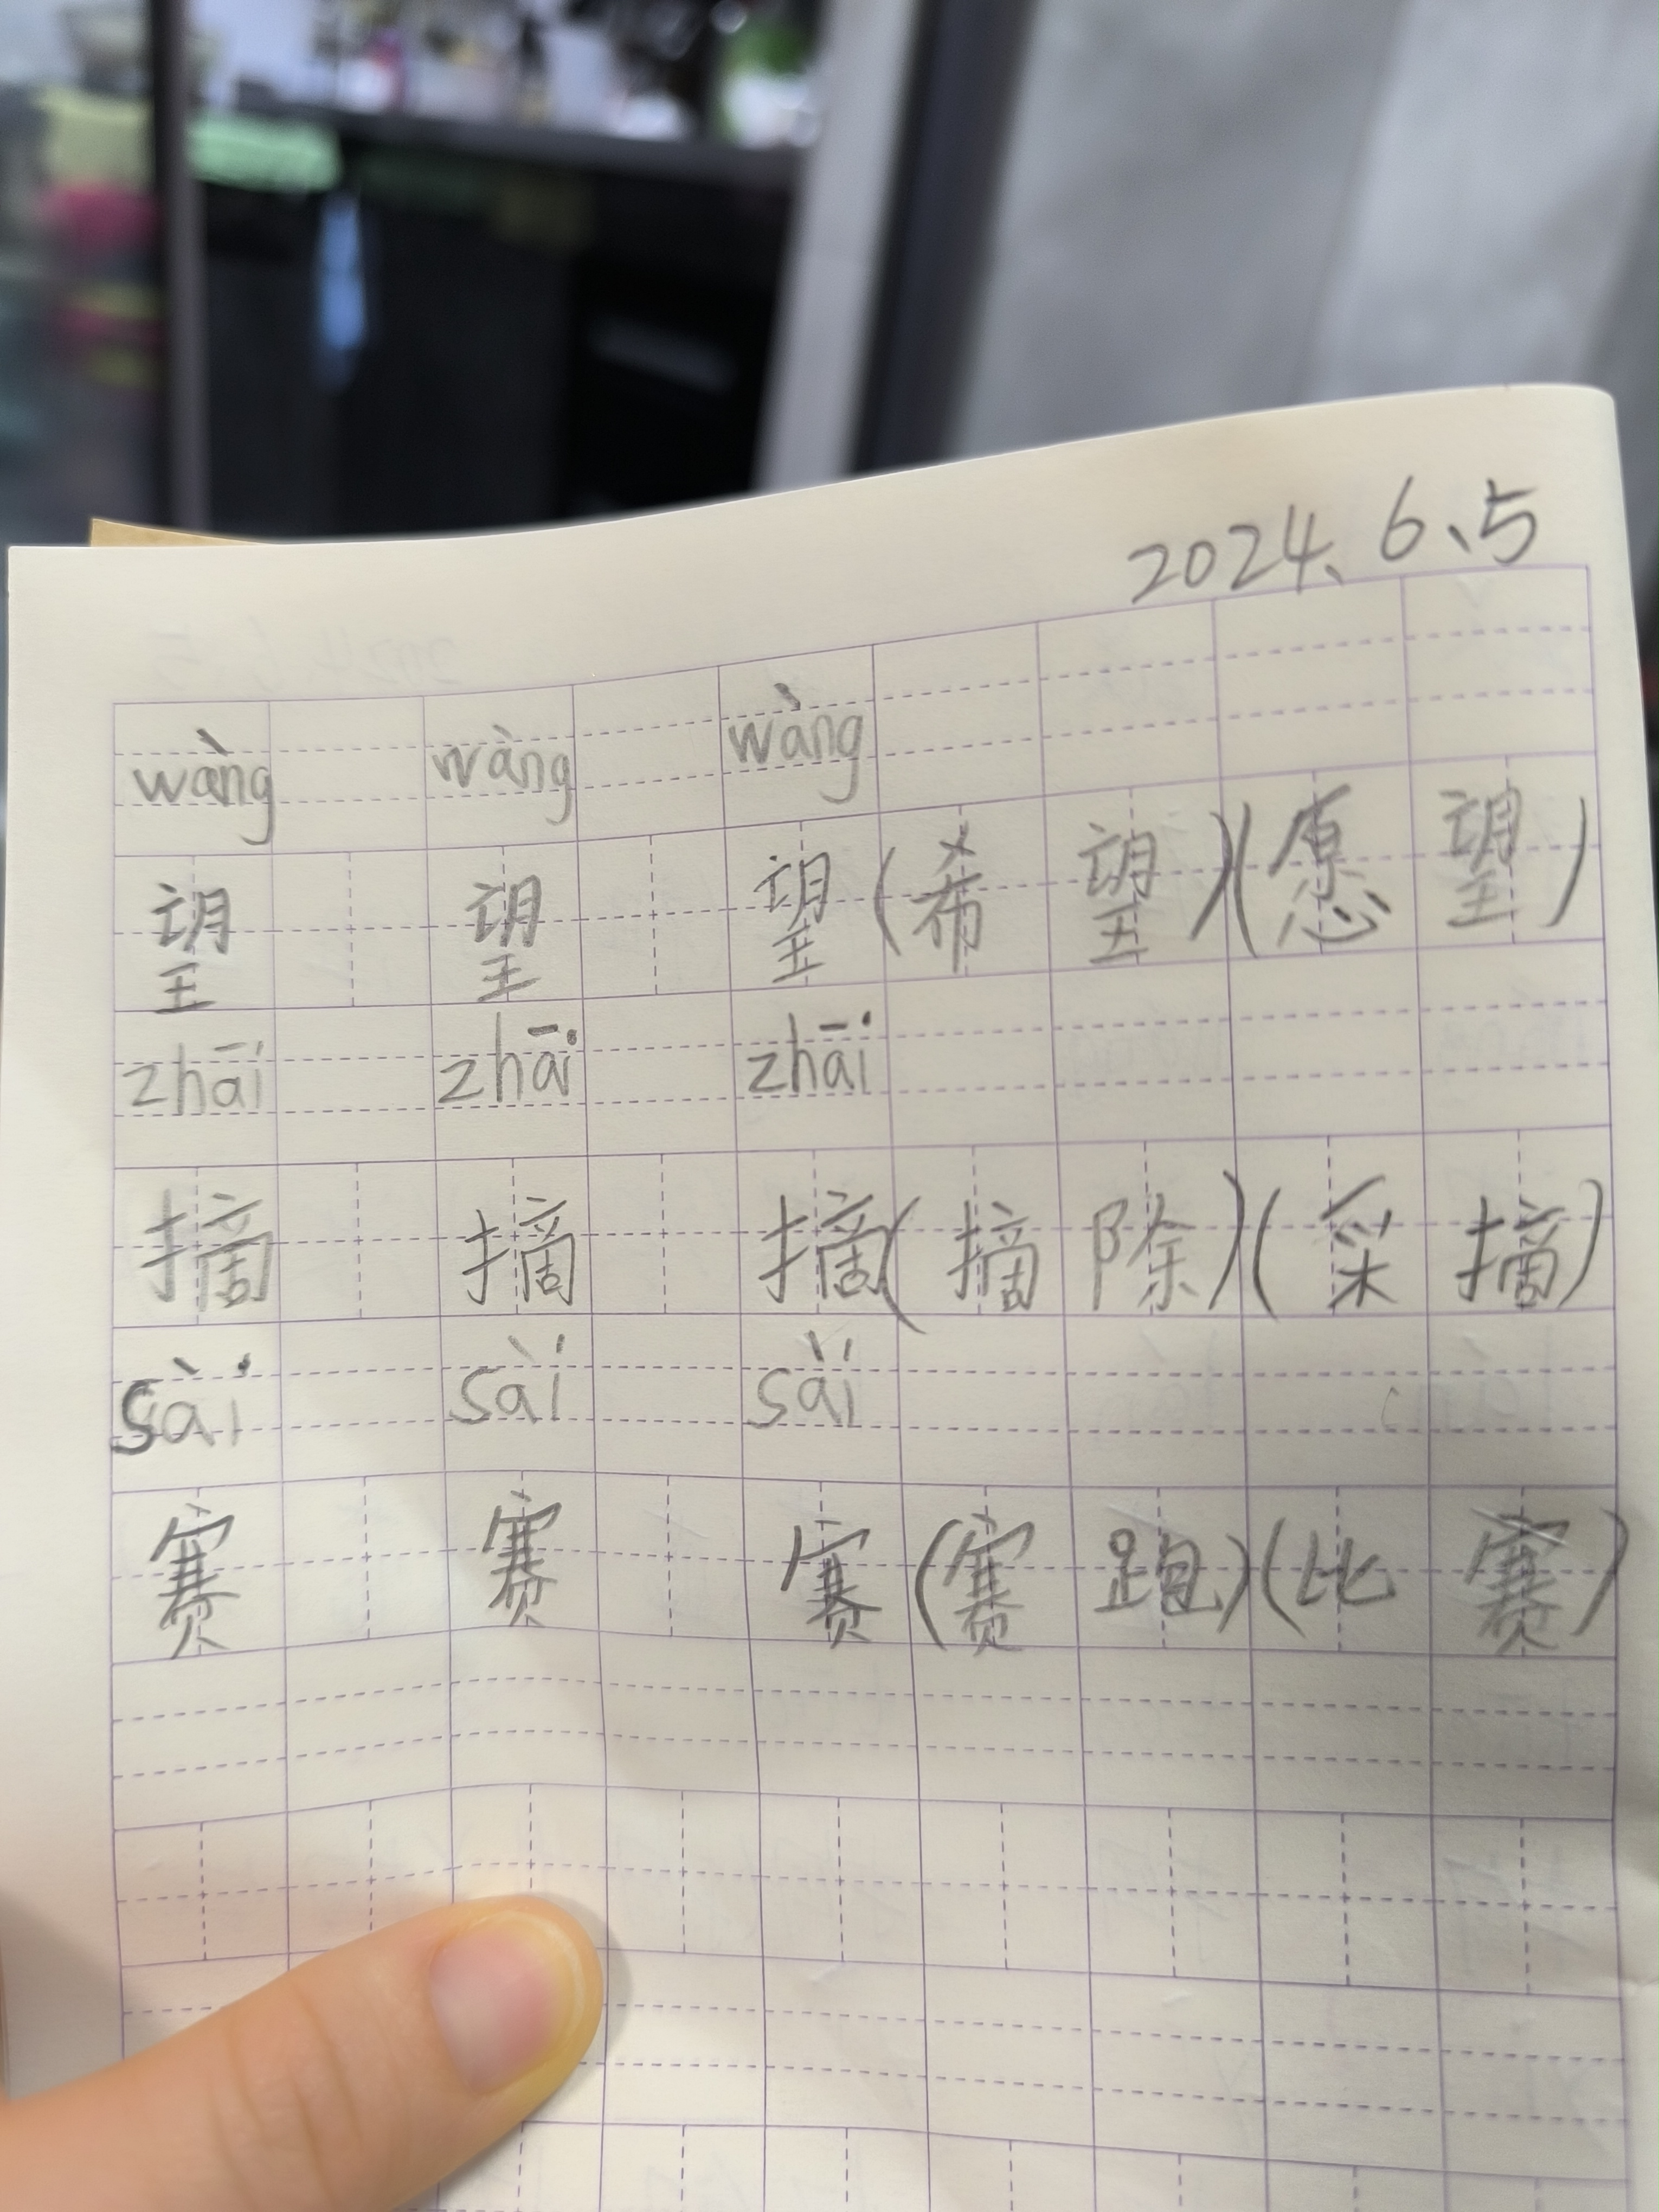 2024、6、5
wàng wàng wàng
望 望 望(希望)(愿望)
zhāi zhāi zhāi
摘 摘 摘(摘除)(采摘)
sài sài sài
赛 赛 赛(赛跑)(比赛)